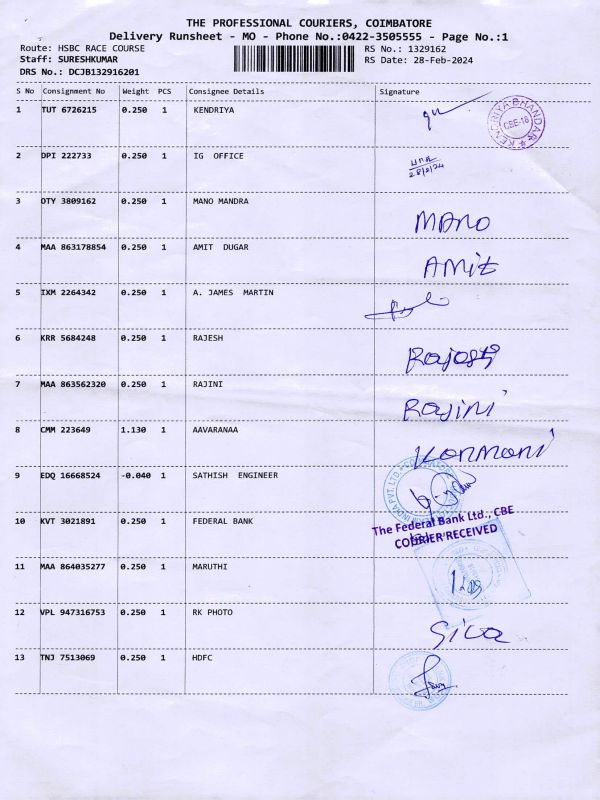 THE PROFESSIONAL COURIERS, COIMBATORE
Delivery Runsheet - MO - Phone No.:0422-3505555 - Page No.:1
Route: HSBC RACE COURSE RS No.: 1329162
Staff: SURESHKUMAR RS Date: 28-Feb-2024
DRS No.: DCJB132916201
S No Consignment No Weight PCS Consignee Details Signature
1 TUT 6726215 0.250 1 KENDRIYA
CBE-18
2 DPI 222733 0.250 1 IG OFFICE
28/2/24
3 OTY 3809162 0.250 1 MANO MANDRA
MANO
4 MAA 863178854 0.250 1 AMIT DUGAR
AMit
5 IXM 2264342 0.250 1 A. JAMES MARTIN
6 KRR 5684248 0.250 1 RAJESH
7 MAA 863562320 0.250 1 RAJINI
Rajini
8 CMM 223649 1.130 1 AAVARANAA
Kanmani
9 EDQ 16668524 -0.040 1 SATHISH ENGINEER
10 KVT 3021891 0.250 1 FEDERAL BANK
The Federal Bank Ltd., CBE
COURIER RECEIVED
11 MAA 864035277 0.250 1 MARUTHI
12 VPL 947316753 0.250 1 RK PHOTO
Siva
13 TNJ 7513069 0.250 1 HDFC